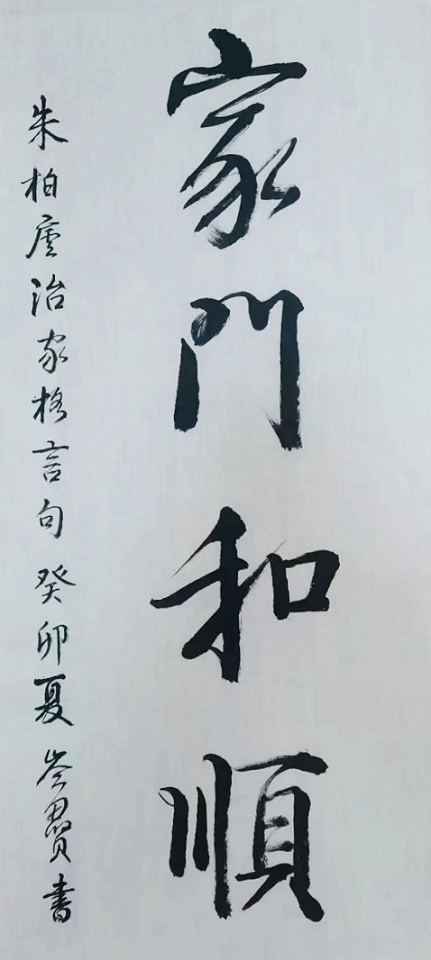 家門和順
朱柏廬治家格言句 癸卯夏 岑贤書